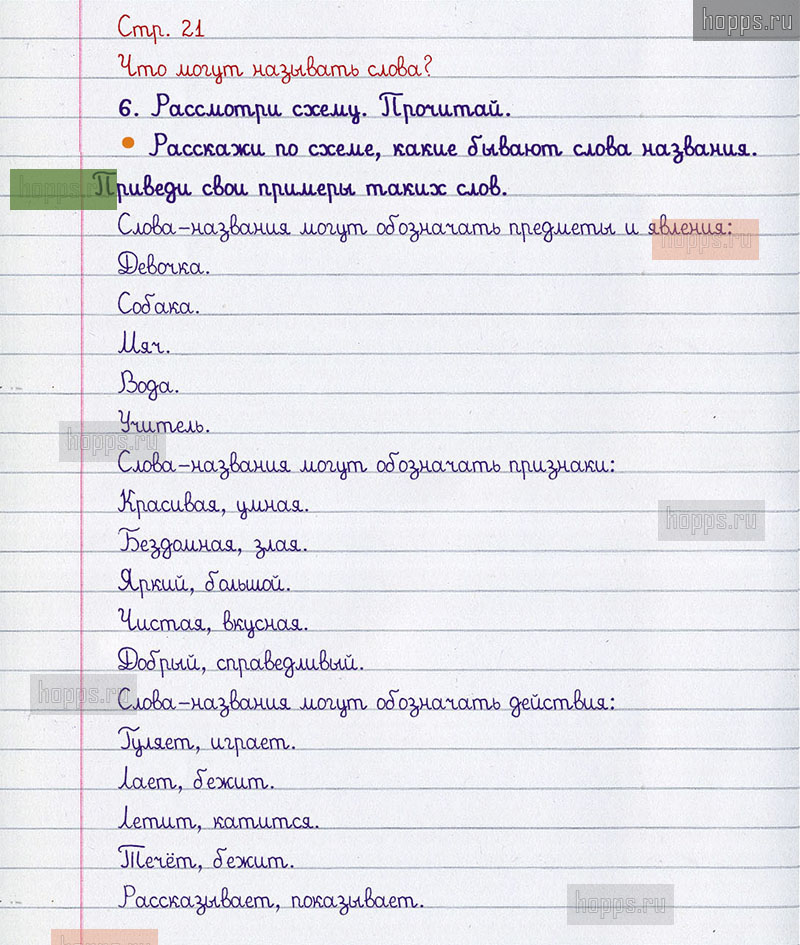 hopps.ru
Стр. 21
Что могут называть слова?
6. Рассмотри схему. Прочитай.
• Расскажи по схеме, какие бывают слова названия.
hopps.ru
Приведи свои примеры таких слов.
Слова-названия могут обозначать предметы и явления:
hopps.ru
Девочка.
Собака.
Мяч.
Вода.
Учитель.
hopps.ru
Слова-названия могут обозначать признаки:
Красивая, умная.
hopps.ru
Бездомная, злая.
Яркий, большой.
Чистая, вкусная.
Добрый, справедливый.
hopps.ru
Слова-названия могут обозначать действия:
Гуляет, играет.
Лает, бежит.
Летит, катится.
Течёт, бежит.
Рассказывает, показывает.
hopps.ru
hopps.ru